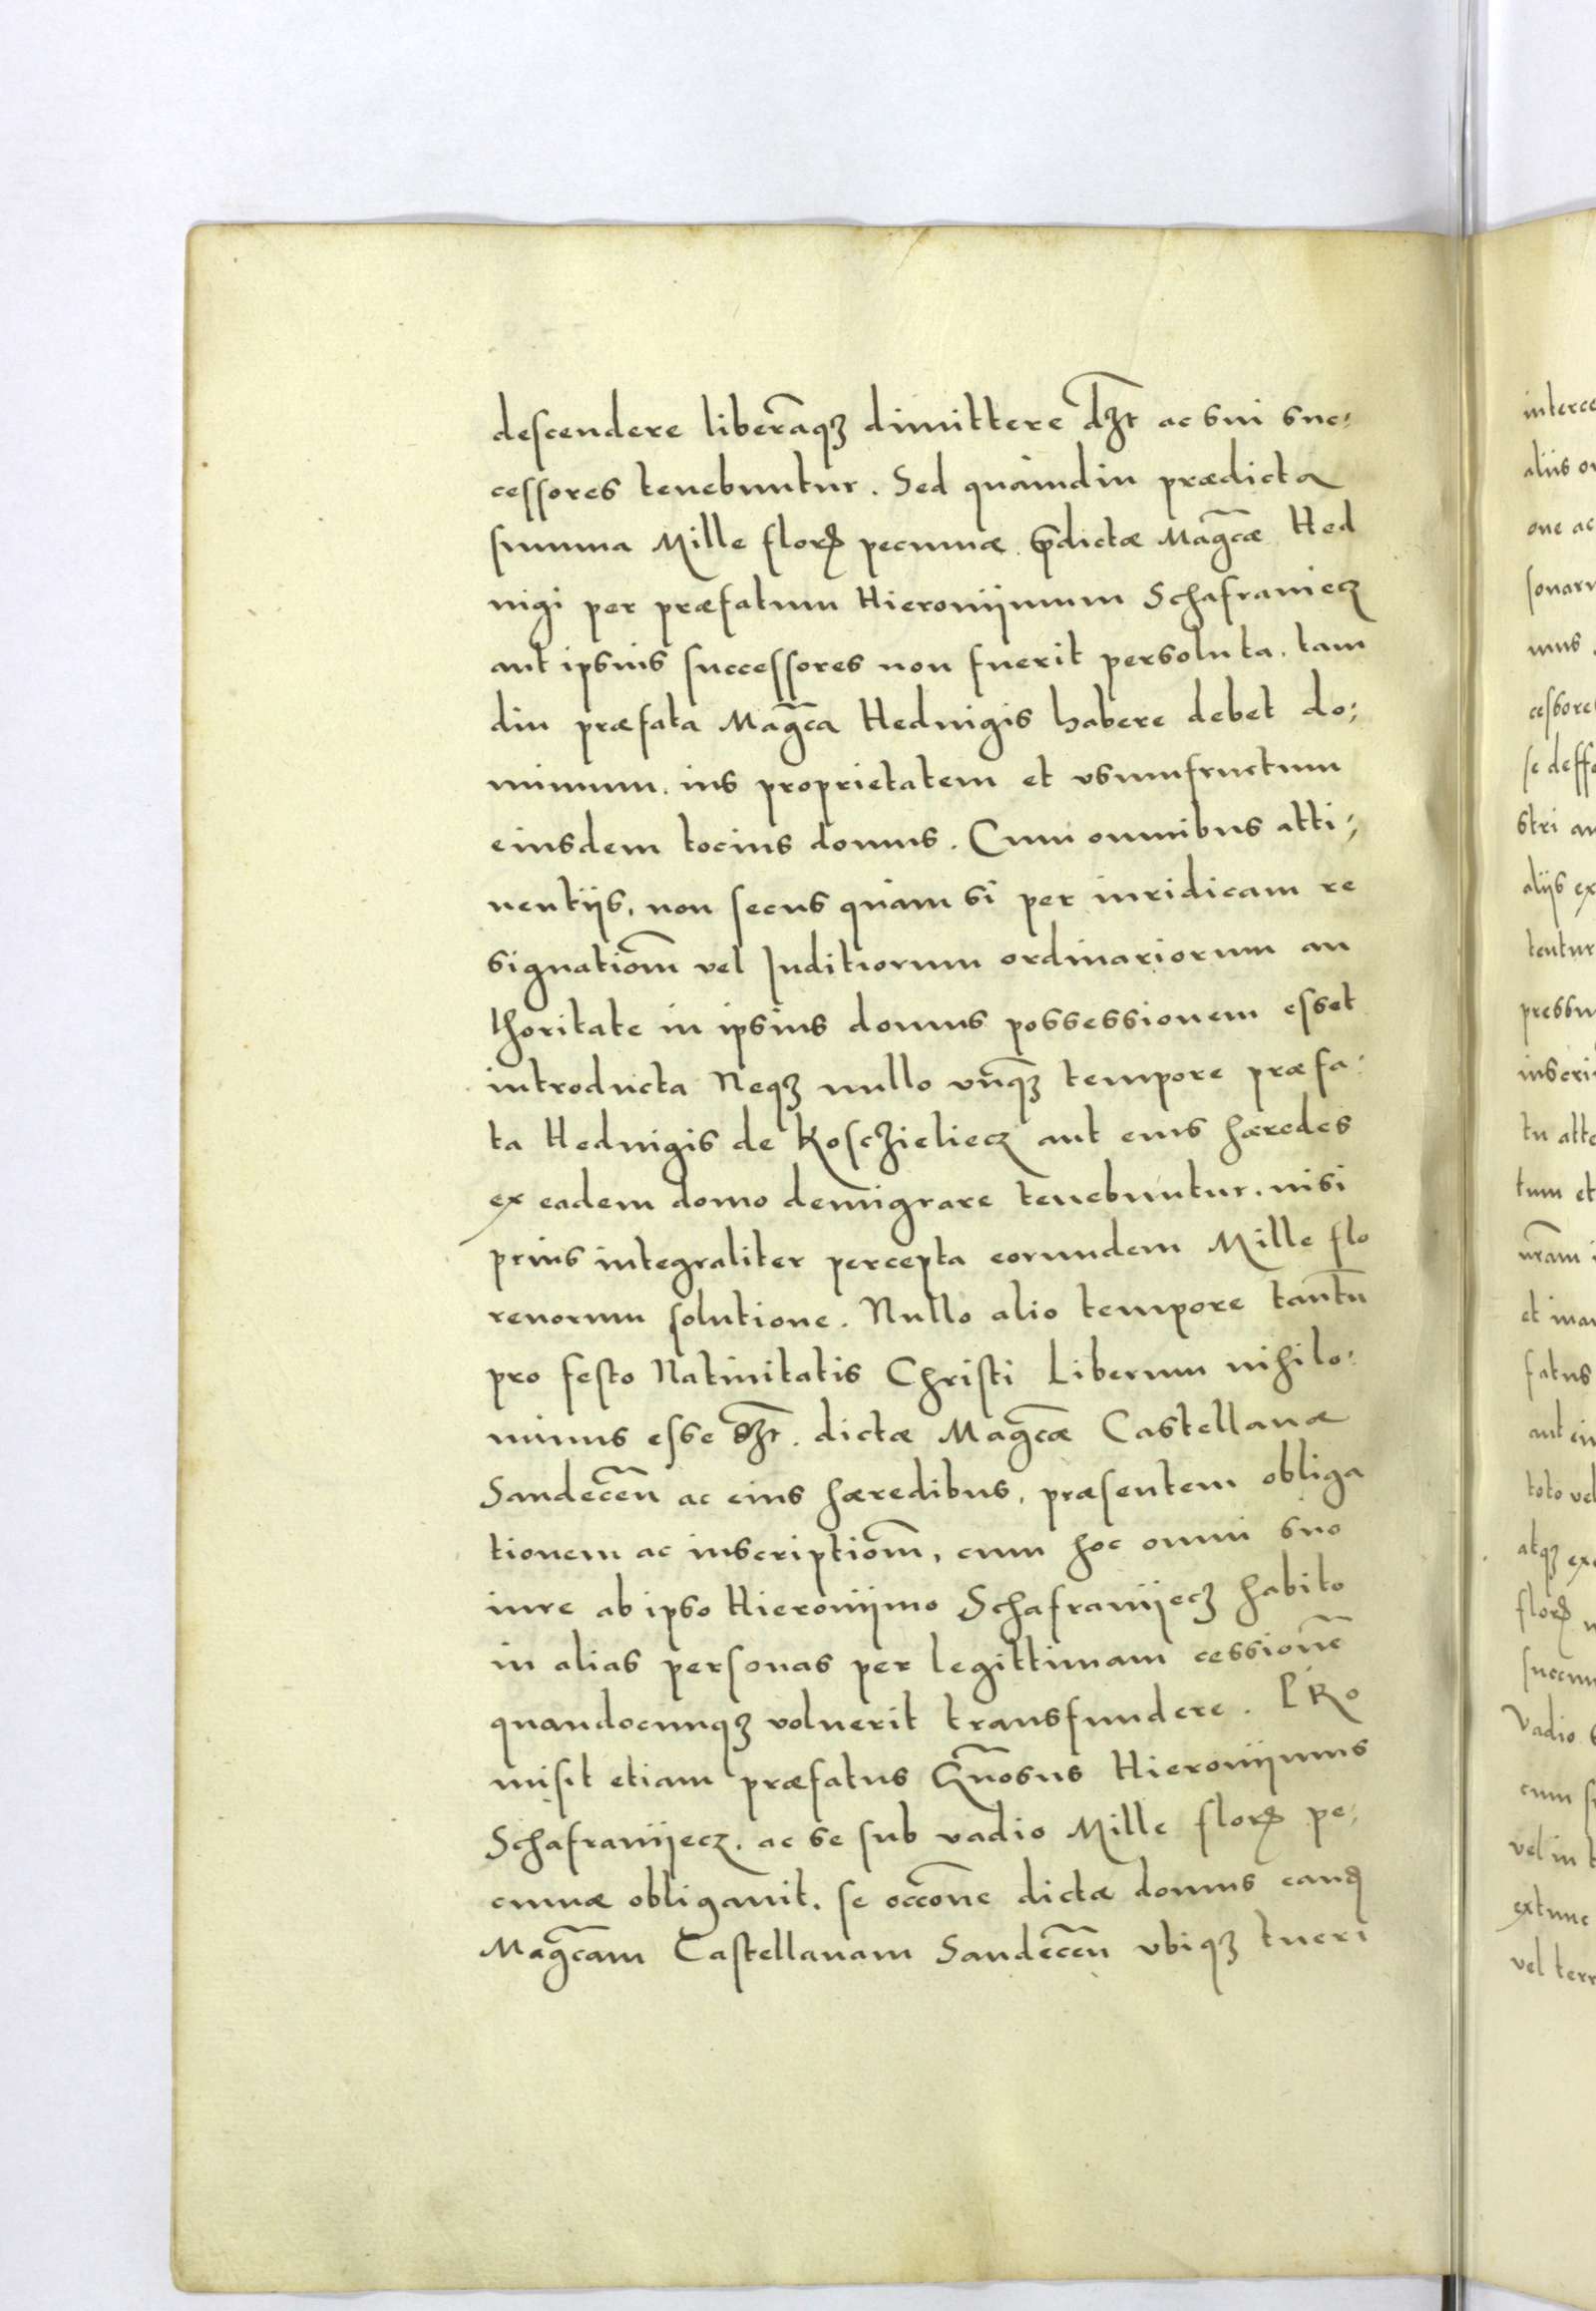 descendere liberãqꝫ dimittere dꝫt ac sui suc:
cessores tenebuntur. Sed quàmdiu prædicta
summa Mille florꝝ pecuniæ p̃dictæ Mag̃cæ Hed
uigi per præfatum Hieronijmum Schafraniecz
aut ipsius successores non fuerit persoluta. tam
diu præfata Mag̃ca Heduigis habere debet do:
minium. ius proprietatem et vsumfructum
eiusdem tocius domus. Cum omnibus atti:
nentijs, non secus quàm si per iuridicam re
signatiõm vel Juditiorum ordinariorum au
thoritate in ipsius domus possessionem esset
introducta Neqꝫ nullo vnq̃ꝫ tempore præfa:
ta Heduigis de Kosczieliecz aut eius hæredes
ex eadem domo demigrare tenebuntur. nisi
prius integraliter percepta eorundem Mille flo
renorum solutione. Nullo alio tempore tantũ
pro festo Natiuitatis Christi Liberum nihilo:
minus esse dꝫt. dictæ Mag̃cæ Castellanæ
Sandecẽn ac eius hæredibus, præsentem obliga
tionem ac inscriptiõm, cum hoc omni suo
iure ab ipso Hieronijmo Schafranijecz habito
in alias personas per legittimam cessionẽ
quandocunqꝫ voluerit transfundere. PRo
misit etiam præfatus Gñosus Hieronijmus
Schafranijecz. ac se sub vadio Mille florꝝ pe:
cuniæ obligauit. se occõne dictæ domus eandꝫ
Mag̃cam Castellanam Sandecẽn vbiqꝫ tueri